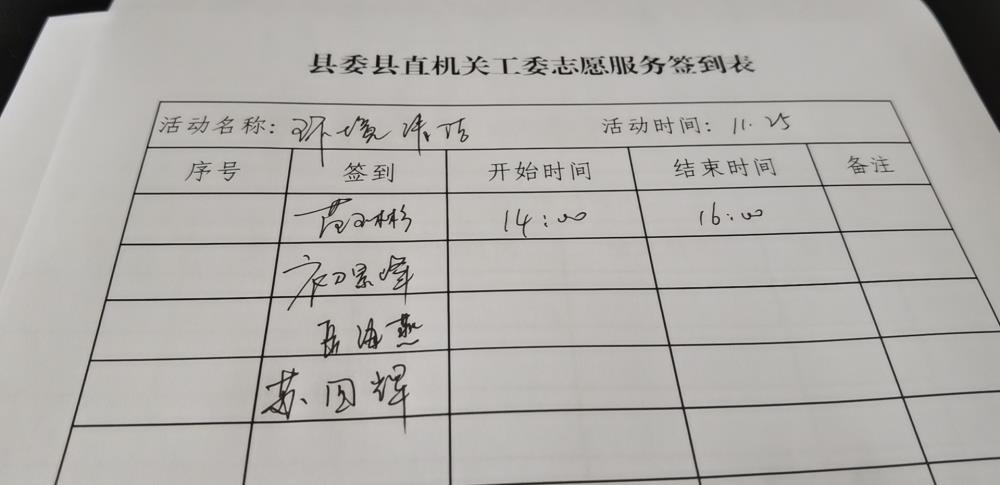 县委县直机关工委志愿服务签到表
活动名称：环境清洁 活动时间：11.25
序号 签到 开始时间 结束时间 备注
范玉彬 14:00 16:00
初景峰
岳海燕
苏国辉